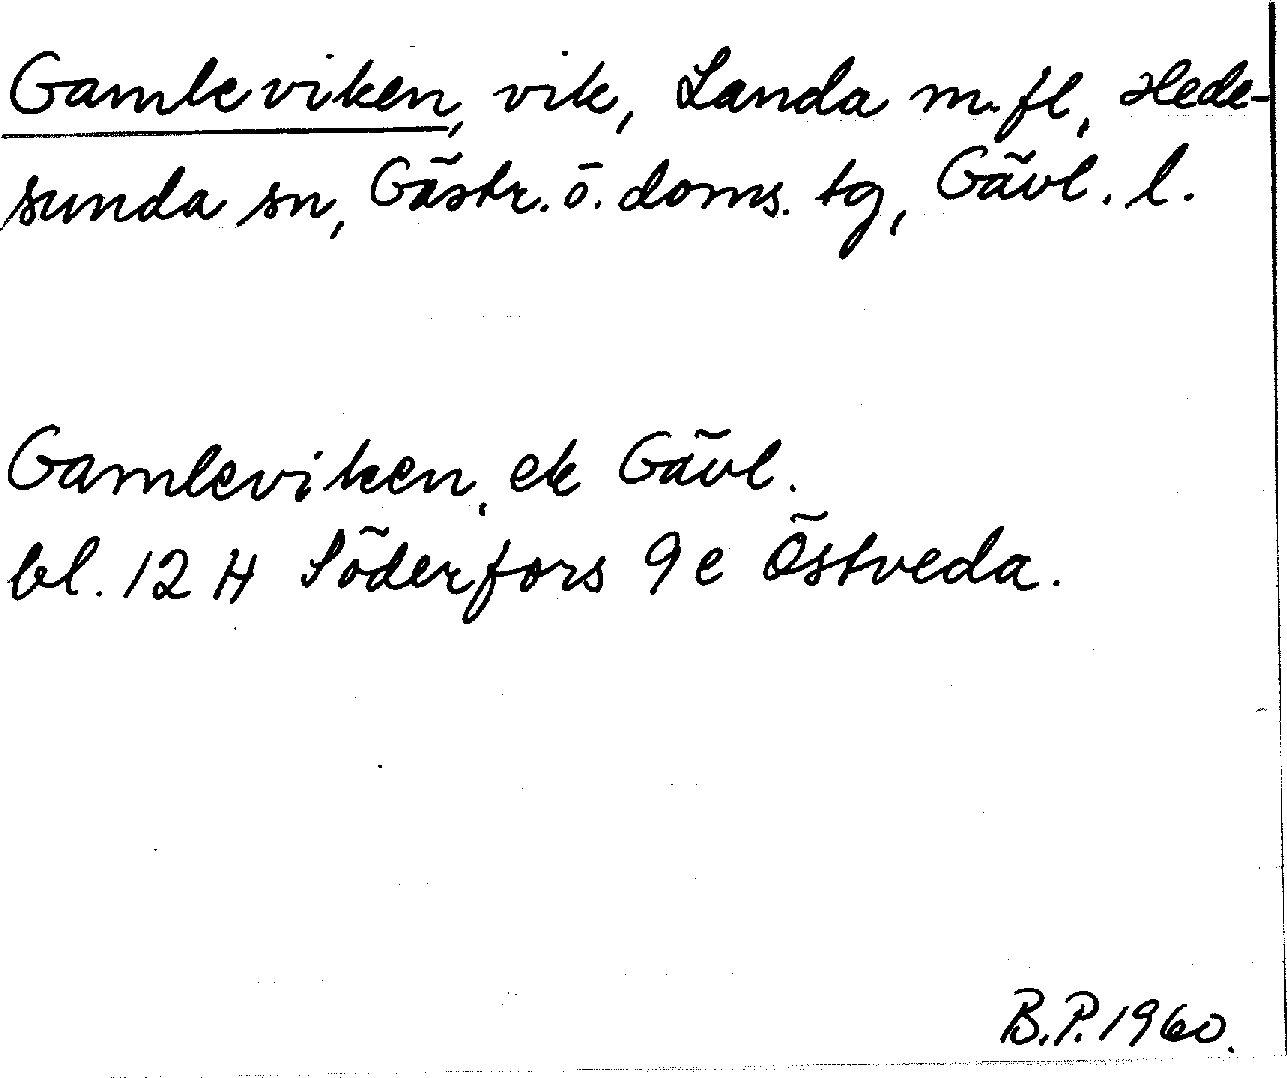 Gamleviken, vik, Landa m.fl., Hede-
sunda sn, Gästr. ö. doms. tg, Gävl. l.
Gamleviken, ek Gävl.
bl. 12 H Söderfors 9 e Östveda.
B.P. 1960.